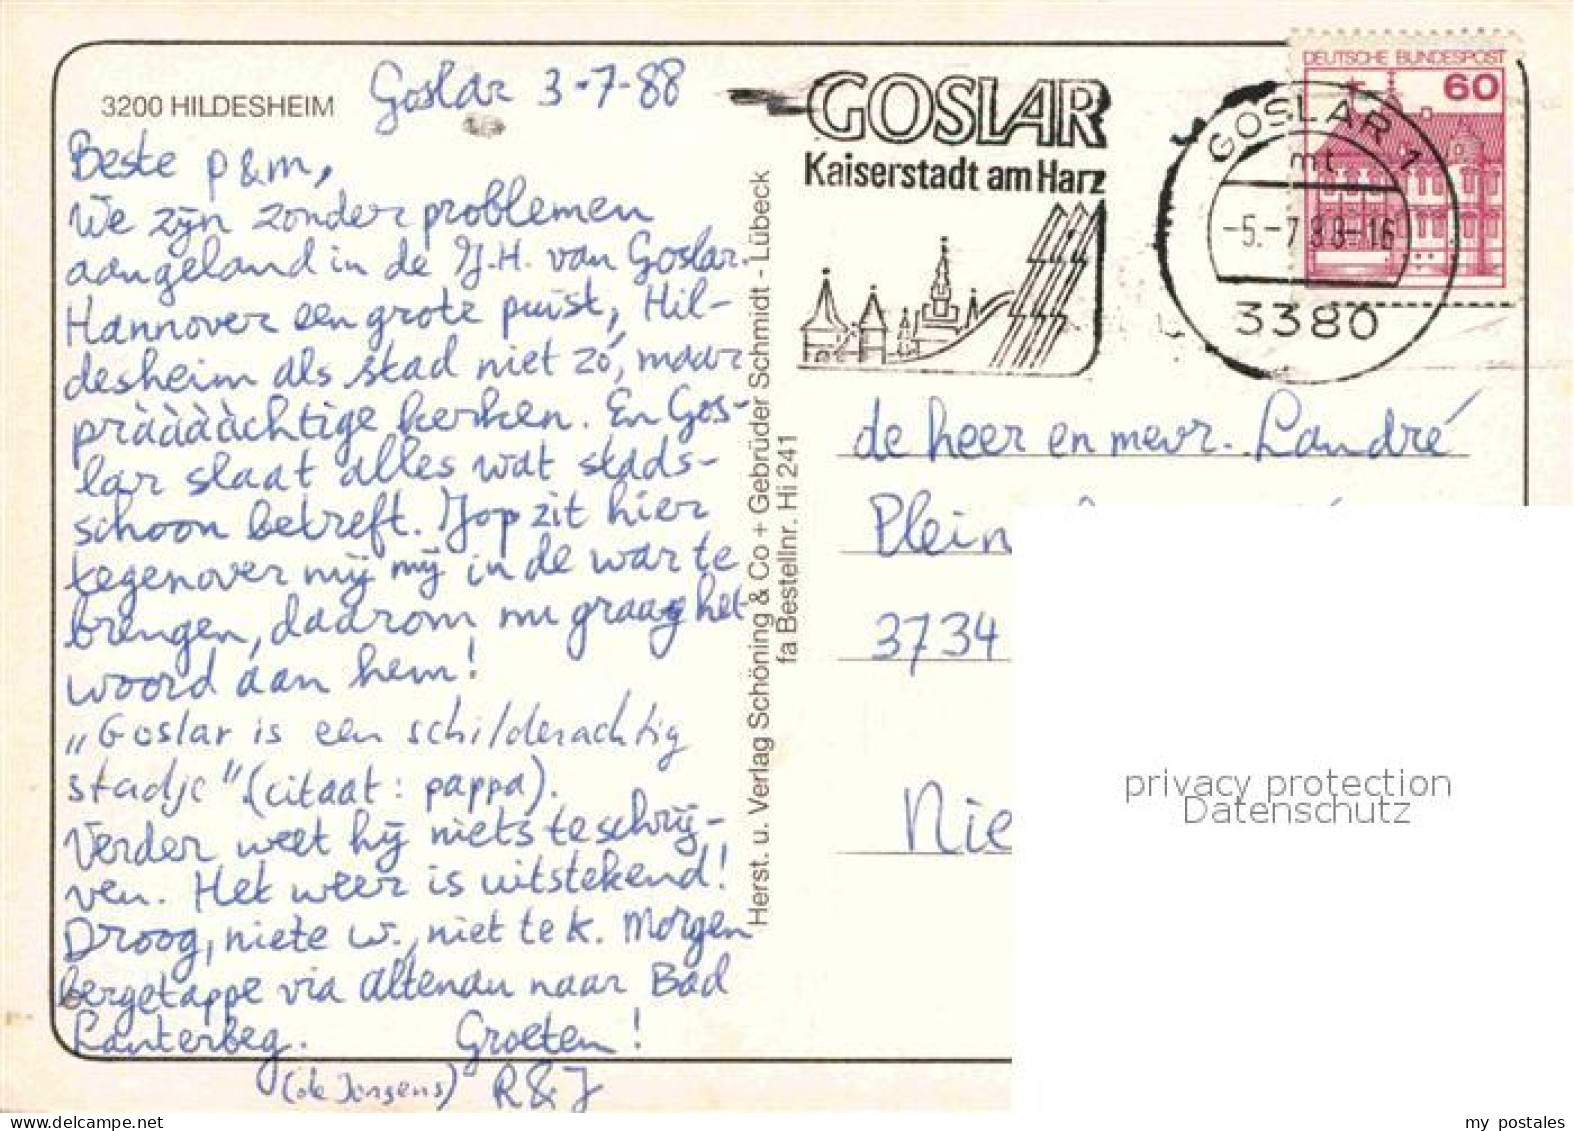 3200 HILDESHEIM
Goslar 3-7-88
Beste p&m,
We zijn zonder problemen
aangeland in de J.H. van Goslar.
Hannover een grote puist, Hil-
desheim als stad niet zó, maar
pràààààchtige kerken. En Gos-
lar slaat alles wat stads-
schoon betreft. Jop zit hier
tegenover mij mij in de war te
brengen, daarom nu graag het
woord aan hem!
„Goslar is een schilderachtig
stadje" (citaat: pappa).
Verder weet hij niets te schrij-
ven. Het weer is uitstekend!
Droog, niet te w., niet te k. Morgen
bergetappe via Altenau naar Bad
Lauterbeg. Groeten!
(de Jongens) R&J
Herst. u. Verlag Schöning & Co + Gebrüder Schmidt - Lübeck
fa Bestellnr. Hi 241
GOSLAR
Kaiserstadt am Harz
DEUTSCHE BUNDESPOST
60
GOSLAR 1
mt
-5.-7.88-16
3380
de heer en mevr. Landré
Plein
3734
Nie
privacy protection
Datenschutz
my postales